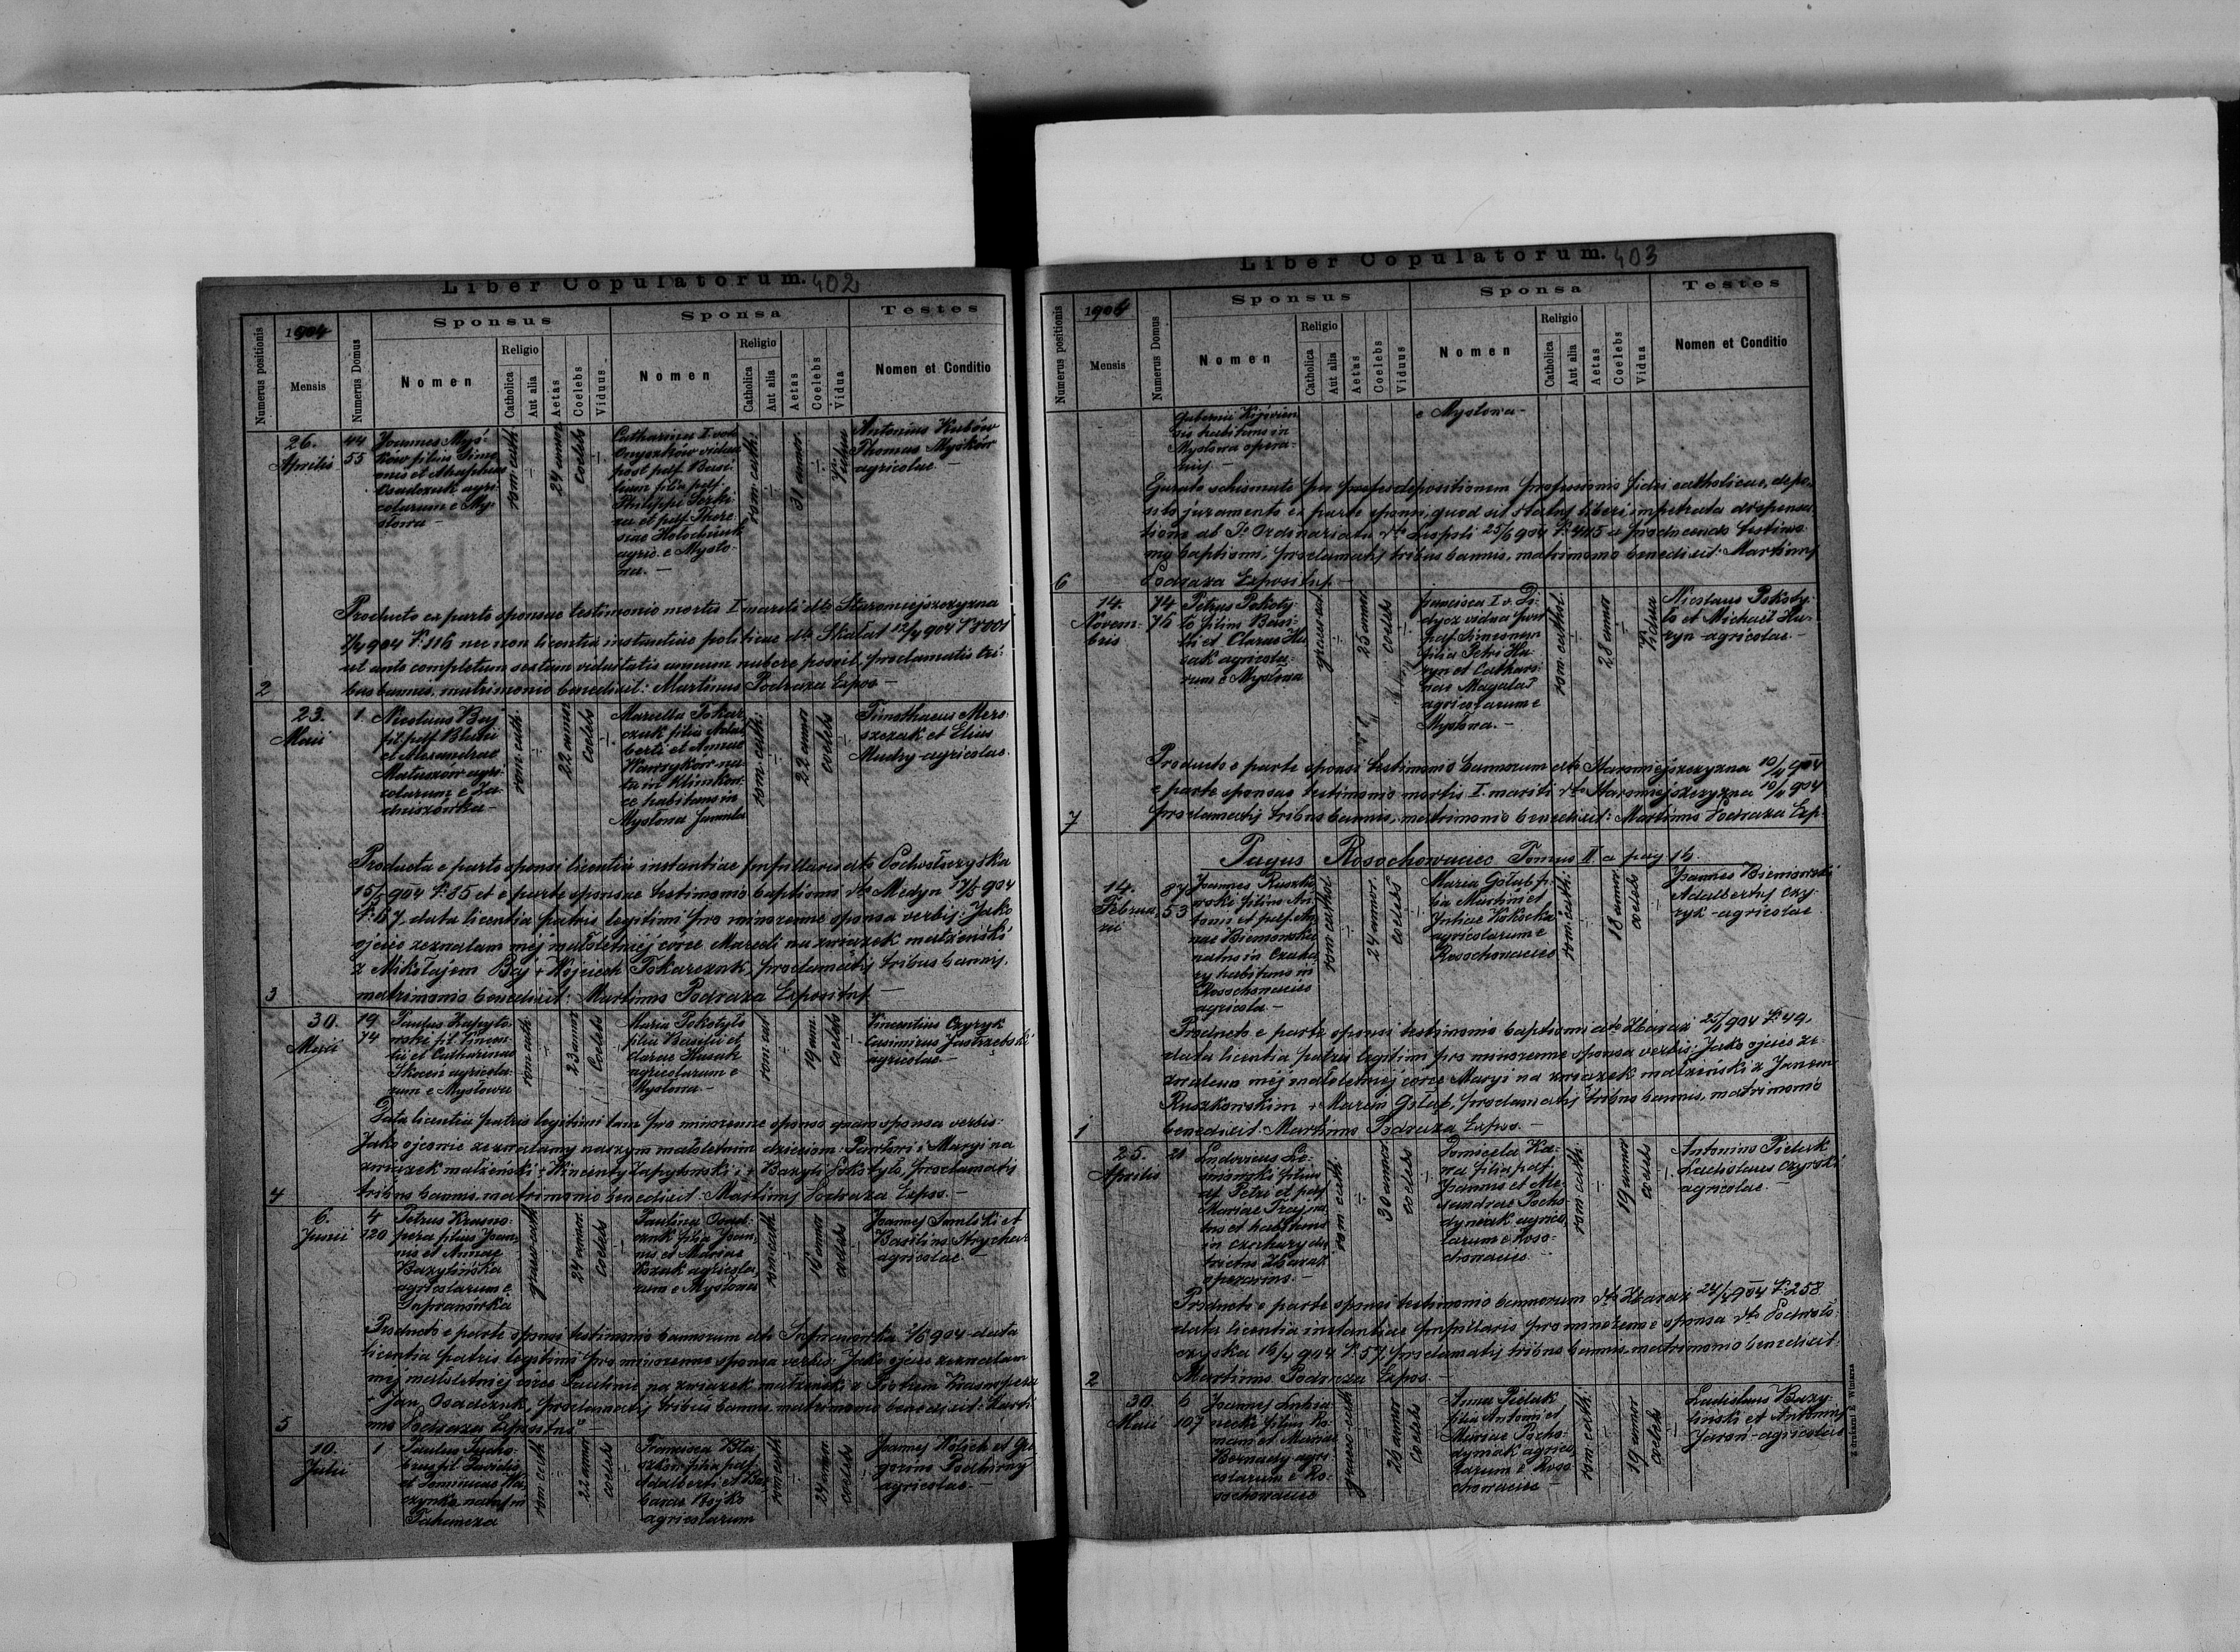 Liber Copulatorum. 402
Numerus positionis
1904
Mensis
Numerus Domus
Sponsus
Nomen
Religio
Catholica
Aut alia
Aetas
Coelebs
Viduus
Sponsa
Nomen
Religio
Catholica
Aut alia
Aetas
Coelebs
Vidua
Testes
Nomen et Conditio
2
26.
Aprilis
44
55
Joannes Myś-
ków filius Simo-
nis et Agaphiae
Osadczuk agri-
colarum e My-
słowa -
rom. cath.
24 annor.
coelebs
Catharina I vod.
Onyszków vidua
post pdf. Basi-
lium filia pdf.
Philippi
et pdf. There-
siae
agric. e Mysło-
wa. -
rom. cath.
31 annor.
Vidua
Antonius Kubów
Thomas Myśków
agricolae -
Producto ex parte sponsae testimonio mortis I mariti dto Staromiejszczyzna
7/4 904 L: 116 nec non licentia instantiae politicae dto Skałat 12/4 904 L: 8001
ut ante completum sextum viduitatis annum nubere possit, proclamatis tri-
bus bannis, matrimonio benedixit: Martinus Podraza Expos -
3
23.
Maii
1
Nicolaus Baj
fil. pdf. Blasii
et Alexandrae
Matuszow agri-
colarum e Ja-
dniszówka -
rom. cath.
22 annor
coelebs
Marcella Tokar-
czuk filia Adal-
berti et Annae
Wawryków na-
ta in Klimkow-
ce habitans in
Mysłowa famula
rom. cath.
22 annor
coelebs
Timothaeus Mero-
szczak et Elias
Mudry - agricolae.
Producta e parte sponsi licentia instantiae pupillaris dto Podwołoczyska
15/5 904 L: 85 et e parte sponsae testimonio baptismi dto Medyn 17/5 904
L: 67. data licentia patris legitimi pro minorenne sponsa verbis: Jako
ojciec zezwalam mej małoletniej córce Marceli na związek małżeński
z Mikołajem Baj + Wojciech Tokarczuk, proclamatis tribus bannis,
matrimonio benedixit: Martinus Podraza Expositus -
4
30.
Maii
19
74
Paulus Zapyto-
wski fil. Vincen-
tii et Catharinae
Skocen agricola-
rum e Mysłowa
rom. cath.
23 annor
Coelebs
Maria Pokotyło
filia Basilii et
Clarae Husak
agricolarum e
Mysłowa -
rom. cat.
19 ann.
coelebs
Vincentius Czyryk
Casimirus Jastrzębski
agricolae -
Data licentia patris legitimi tam pro minorenne sponso quam sponsa verbis:
Jako ojcowie zezwalamy naszym małoletnim dzieciom: Pawłowi i Maryi na
związek małżeński + Wincenty Zapytowski i + Bazyli Pokotyło, proclamatis
tribus bannis, matrimonio benedixit: Martinus Podraza Expos. -
5
6.
Junii
4
120
Petrus Krasno-
pera filius Joan-
nis et Annae
Bazylińska
agricolarum e
Supranówka
graeco cath
24 annor.
coelebs
Paulina Osad-
czuk filia Joan-
nis et Mariae
Kozak agricola-
rum e Mysłowa
rom. cath
16 annor
coelebs
Joannes Samlski et
Basilius Strychar
agricolae -
Producto e parte sponsi testimonio bannorum dto Supranówka 2/6 904 - data
licentia patris legitimi pro minorenne sponsa verbis: Jako ojciec zezwalam
mej małoletniej córce Paulinie na związek małżeński z Piotrem Krasnopera
+ Jan Osadczuk, proclamatis tribus bannis, matrimonio benedixit: Marti-
nus Podraza Expositus -
10.
Julii
1
Paulus Sucho-
brus fil. Davidis
et Dominicae Ka-
czynka natus in
rom. cath
22 annor
coelebs
Francisca Bła-
szków filia pdf.
Adalberti et Bar-
barae Bojko
agricolarum
rom. cath
24 annor.
coelebs
Joannes Wolich et Gre-
gorius Podhirny
agricolae. -
Liber Copulatorum. 403
Numerus positionis
1904
Mensis
Numerus Domus
Sponsus
Nomen
Religio
Catholica
Aut alia
Aetas
Coelebs
Viduus
Sponsa
Nomen
Religio
Catholica
Aut alia
Aetas
Coelebs
Vidua
Testes
Nomen et Conditio
6
Gubernii Kijovien-
sis habitans in
Mysłowa opera-
rius. -
e Mysłowa -
Ejurato schismate per depositionem professionis fidei catholicae, depo-
sito juramento ex parte sponsi, quod sit status liberi, impetrata dispensa-
tione ab Ordinariatu dto Leopoli 25/6 904 L: 4415 a producendo testimo-
nio baptismi, proclamatis tribus bannis, matrimonio benedixit: Martinus
Podraza Expositus. -
7
14.
Novem-
bris
74
76
Petrus Pokoty-
ło filius Basi-
lii et Clarae Hu-
sak agricola-
rum e Mysłowa
graeco cat
25 annor
coelebs
Francisca I v. Dy-
dycz vidua post
pdf. Simeonem
filia Petri Hu-
ryn et Cathari-
nae Magalas
agricolarum e
Mysłowa. -
rom. cathol.
28 annor
Vidua
Nicolaus Pokoty-
ło et Michaël Hu-
ryn - agricolae. -
Producto e parte sponsi testimonio bannorum dto Staromiejszczyzna 10/11 904
e parte sponsae testimonio mortis I. mariti dto Staromiejszczyzna 10/11 904
proclamatis tribus bannis, matrimonio benedixit: Martinus Podraza Exp.
Pagus Rosochowaciec Tomus II a pag 16.
1
14.
Februa-
rii
87
53
Joannes Ruszko-
wski filius An-
tonii et pdf. An-
nae Bieniowska
natus in Czaha-
ry habitans in
Rosochowaciec
agricola -
rom. cathol.
24 annor.
coelebs
Maria Gołąb fi-
lia Martini et
Justinae Kokocka
agricolarum e
Rosochowaciec
rom. cath.
18 annor
coelebs
Joannes Bieniowski
Adalbertus Czy-
ryk - agricolae
Producto e parte sponsi testimonio baptismi dto Zbaraż 25/1 904 L: 49,
data licentia patris legitimi pro minorenne sponsa verbis: Jako ojciec ze-
zwalam mej małoletniej córce Maryi na związek małżeński z Janem
Ruszkowskim + Marcin Gołąb, proclamatis tribus bannis, matrimonio
benedixit: Martinus Podraza Expos. -
2
25.
Aprilis
21
Ludovicus Le-
wandowski filius
Petri et pdf.
Mariae na-
tus et habitans
in Czahary dis-
trictus Zbaraż
operarius. -
rom. cath.
30 annor
coelebs
Domicela Ka-
wa filia pdf.
Joannis et Ale-
xandrae Pocho-
dyniak agrico-
larum e Roso-
chowaciec
rom. cath.
19 annor
coelebs
Antonius Pielak
Ladislaus Czyrski
agricolae. -
Producto e parte sponsi testimonio bannorum dto Zbaraż 24/4 904 L: 258
data licentia instantiae pupillaris pro minorenne sponsa dto Podwoło-
czyska 16/4 904 L: 57, proclamatis tribus bannis, matrimonio benedixit:
Martinus Podraza Expos. -
30.
Maii
6
107
Joannes Lubia-
necki filius Ro-
mani et Mariae
Bernady agri-
colarum e Ro-
sochowaciec
graeco cath
26 annor
coelebs
Anna Pielak
filia Antonii et
Mariae Pocho-
dyniak agrico-
larum e Roso-
chowaciec -
rom. cath.
19 annor
coelebs
Ladislaus Bazy-
liński et Antonius
Jaroń - agricolae
Z drukarni E. Wintera